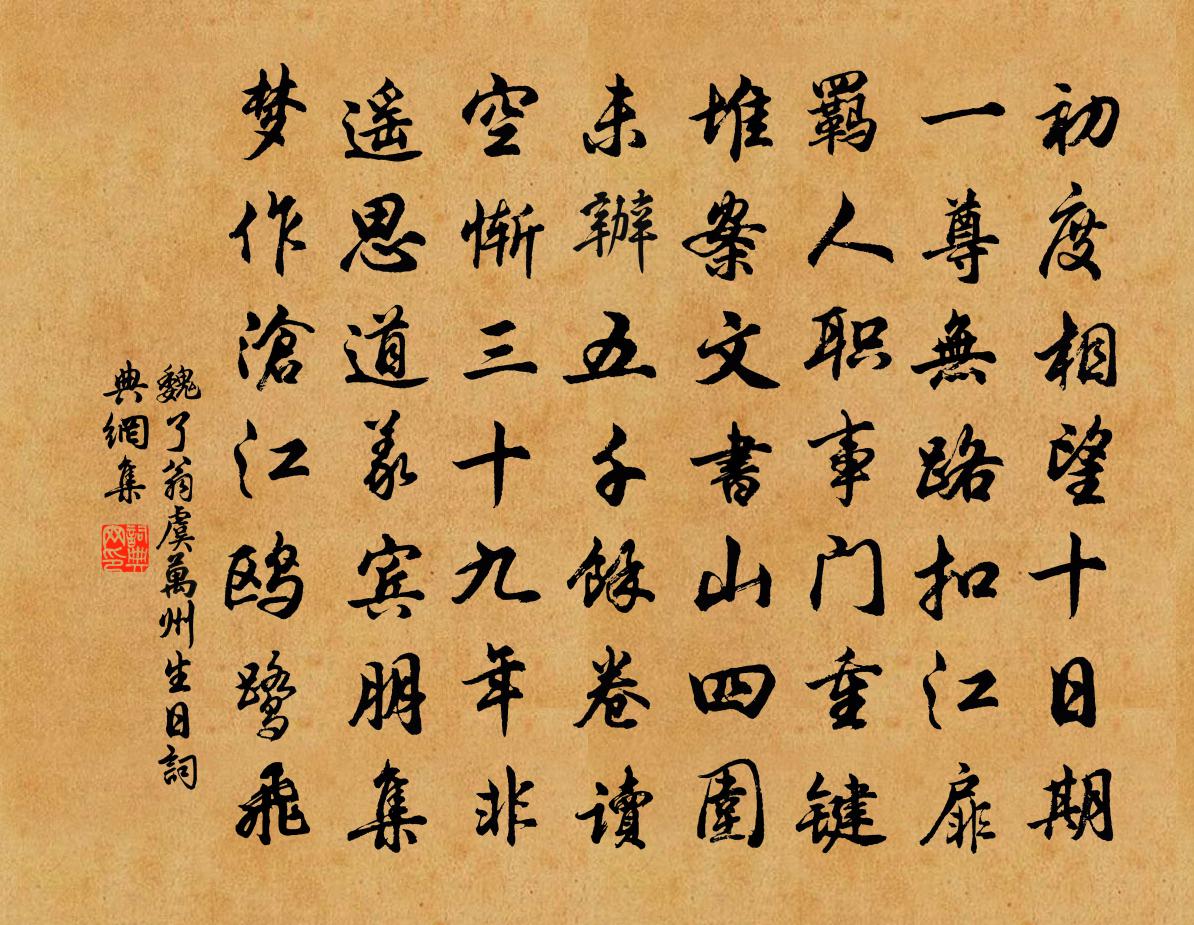 初度相望十日期
一尊無路扣江扉
羁人职事门重键
堆案文書山四圍
未辦五千餘卷讀
空慚三十九年非
遥思道義宾朋集
梦作滄江鸥鹭飛
魏了翁虞萬州生日詞
典網集
詞典网印